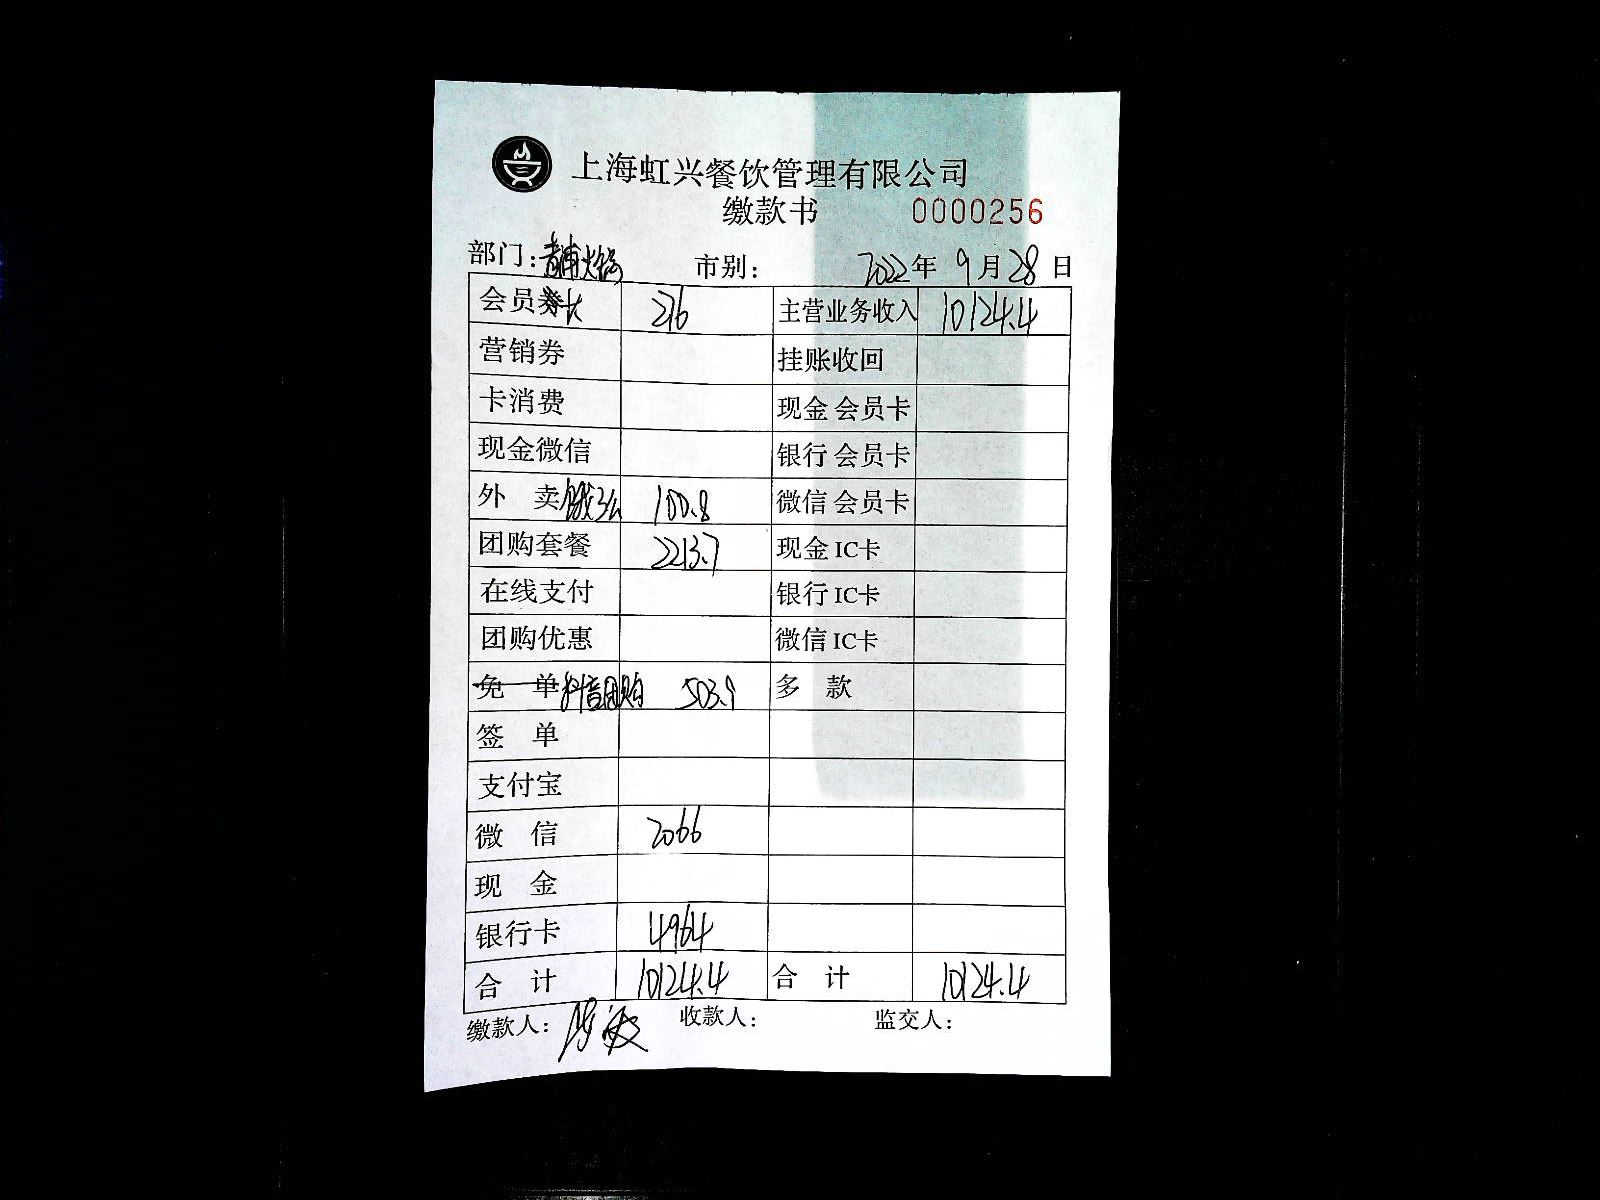 上海虹兴餐饮管理有限公司
缴款书 0000256
部门：青浦火锅 市别： 2022年 9月28日
会员卡 276 主营业务收入 10124.4
营销券 挂账收回
卡消费 现金 会员卡
现金微信 银行 会员卡
外 卖 饿了么 100.8 微信 会员卡
团购套餐 2213.7 现金 IC卡
在线支付 银行 IC卡
团购优惠 微信 IC卡
免 单 抖音团购 503.9 多 款
签 单
支付宝
微 信 2066
现 金
银行卡 4964
合 计 10124.4 合 计 10124.4
缴款人： 收款人： 监交人：